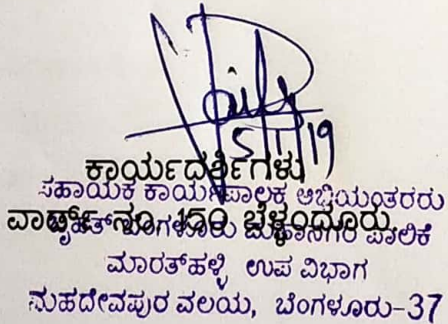 5/11/19
ಕಾರ್ಯದರ್ಶಿಗಳು
ಸಹಾಯಕ ಕಾರ್ಯಪಾಲಕ ಅಭಿಯಂತರರು
ವಾರ್ಡ್ ನಂ. 150 ಬೆಳ್ಳಂದೂರು
ಬೃಹತ್ ಬೆಂಗಳೂರು ಮಹಾನಗರ ಪಾಲಿಕೆ
ಮಾರತ್‌ಹಳ್ಳಿ ಉಪ ವಿಭಾಗ
ಮಹದೇವಪುರ ವಲಯ, ಬೆಂಗಳೂರು-37